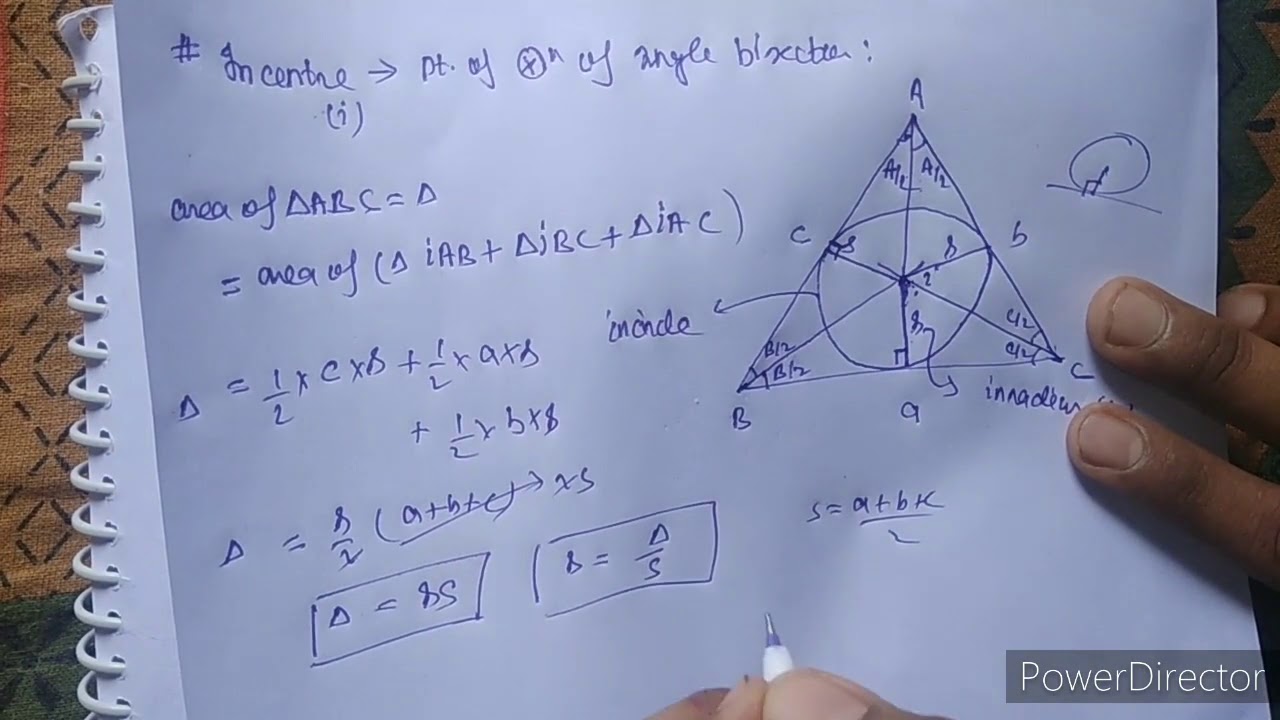 # Incentre → Pt. of ⊗ⁿ of angle bisector :
(i)
area of ΔABC = Δ
= area of (Δ iAB + ΔiBC + ΔiAC)
Δ = 1/2 × c × r + 1/2 × a × r
+ 1/2 × b × r
Δ = r/2 (a+b+c) → ×s
Δ = rs
r = Δ/s
A
A/2 A/2
c
r
r
b
i
r
incircle
B/2
B/2
C/2
C/2
B
a
C
inradius
s = a+b+c/2
PowerDirector